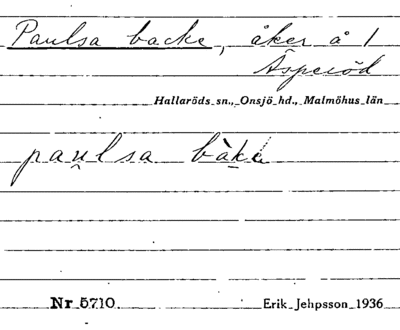 Paulsa backe, åker å 1
Äsperöd
Hallaröds sn., Onsjö hd., Malmöhus län
pau̯lsa bàkə
Nr 5710
Erik Jehpsson 1936